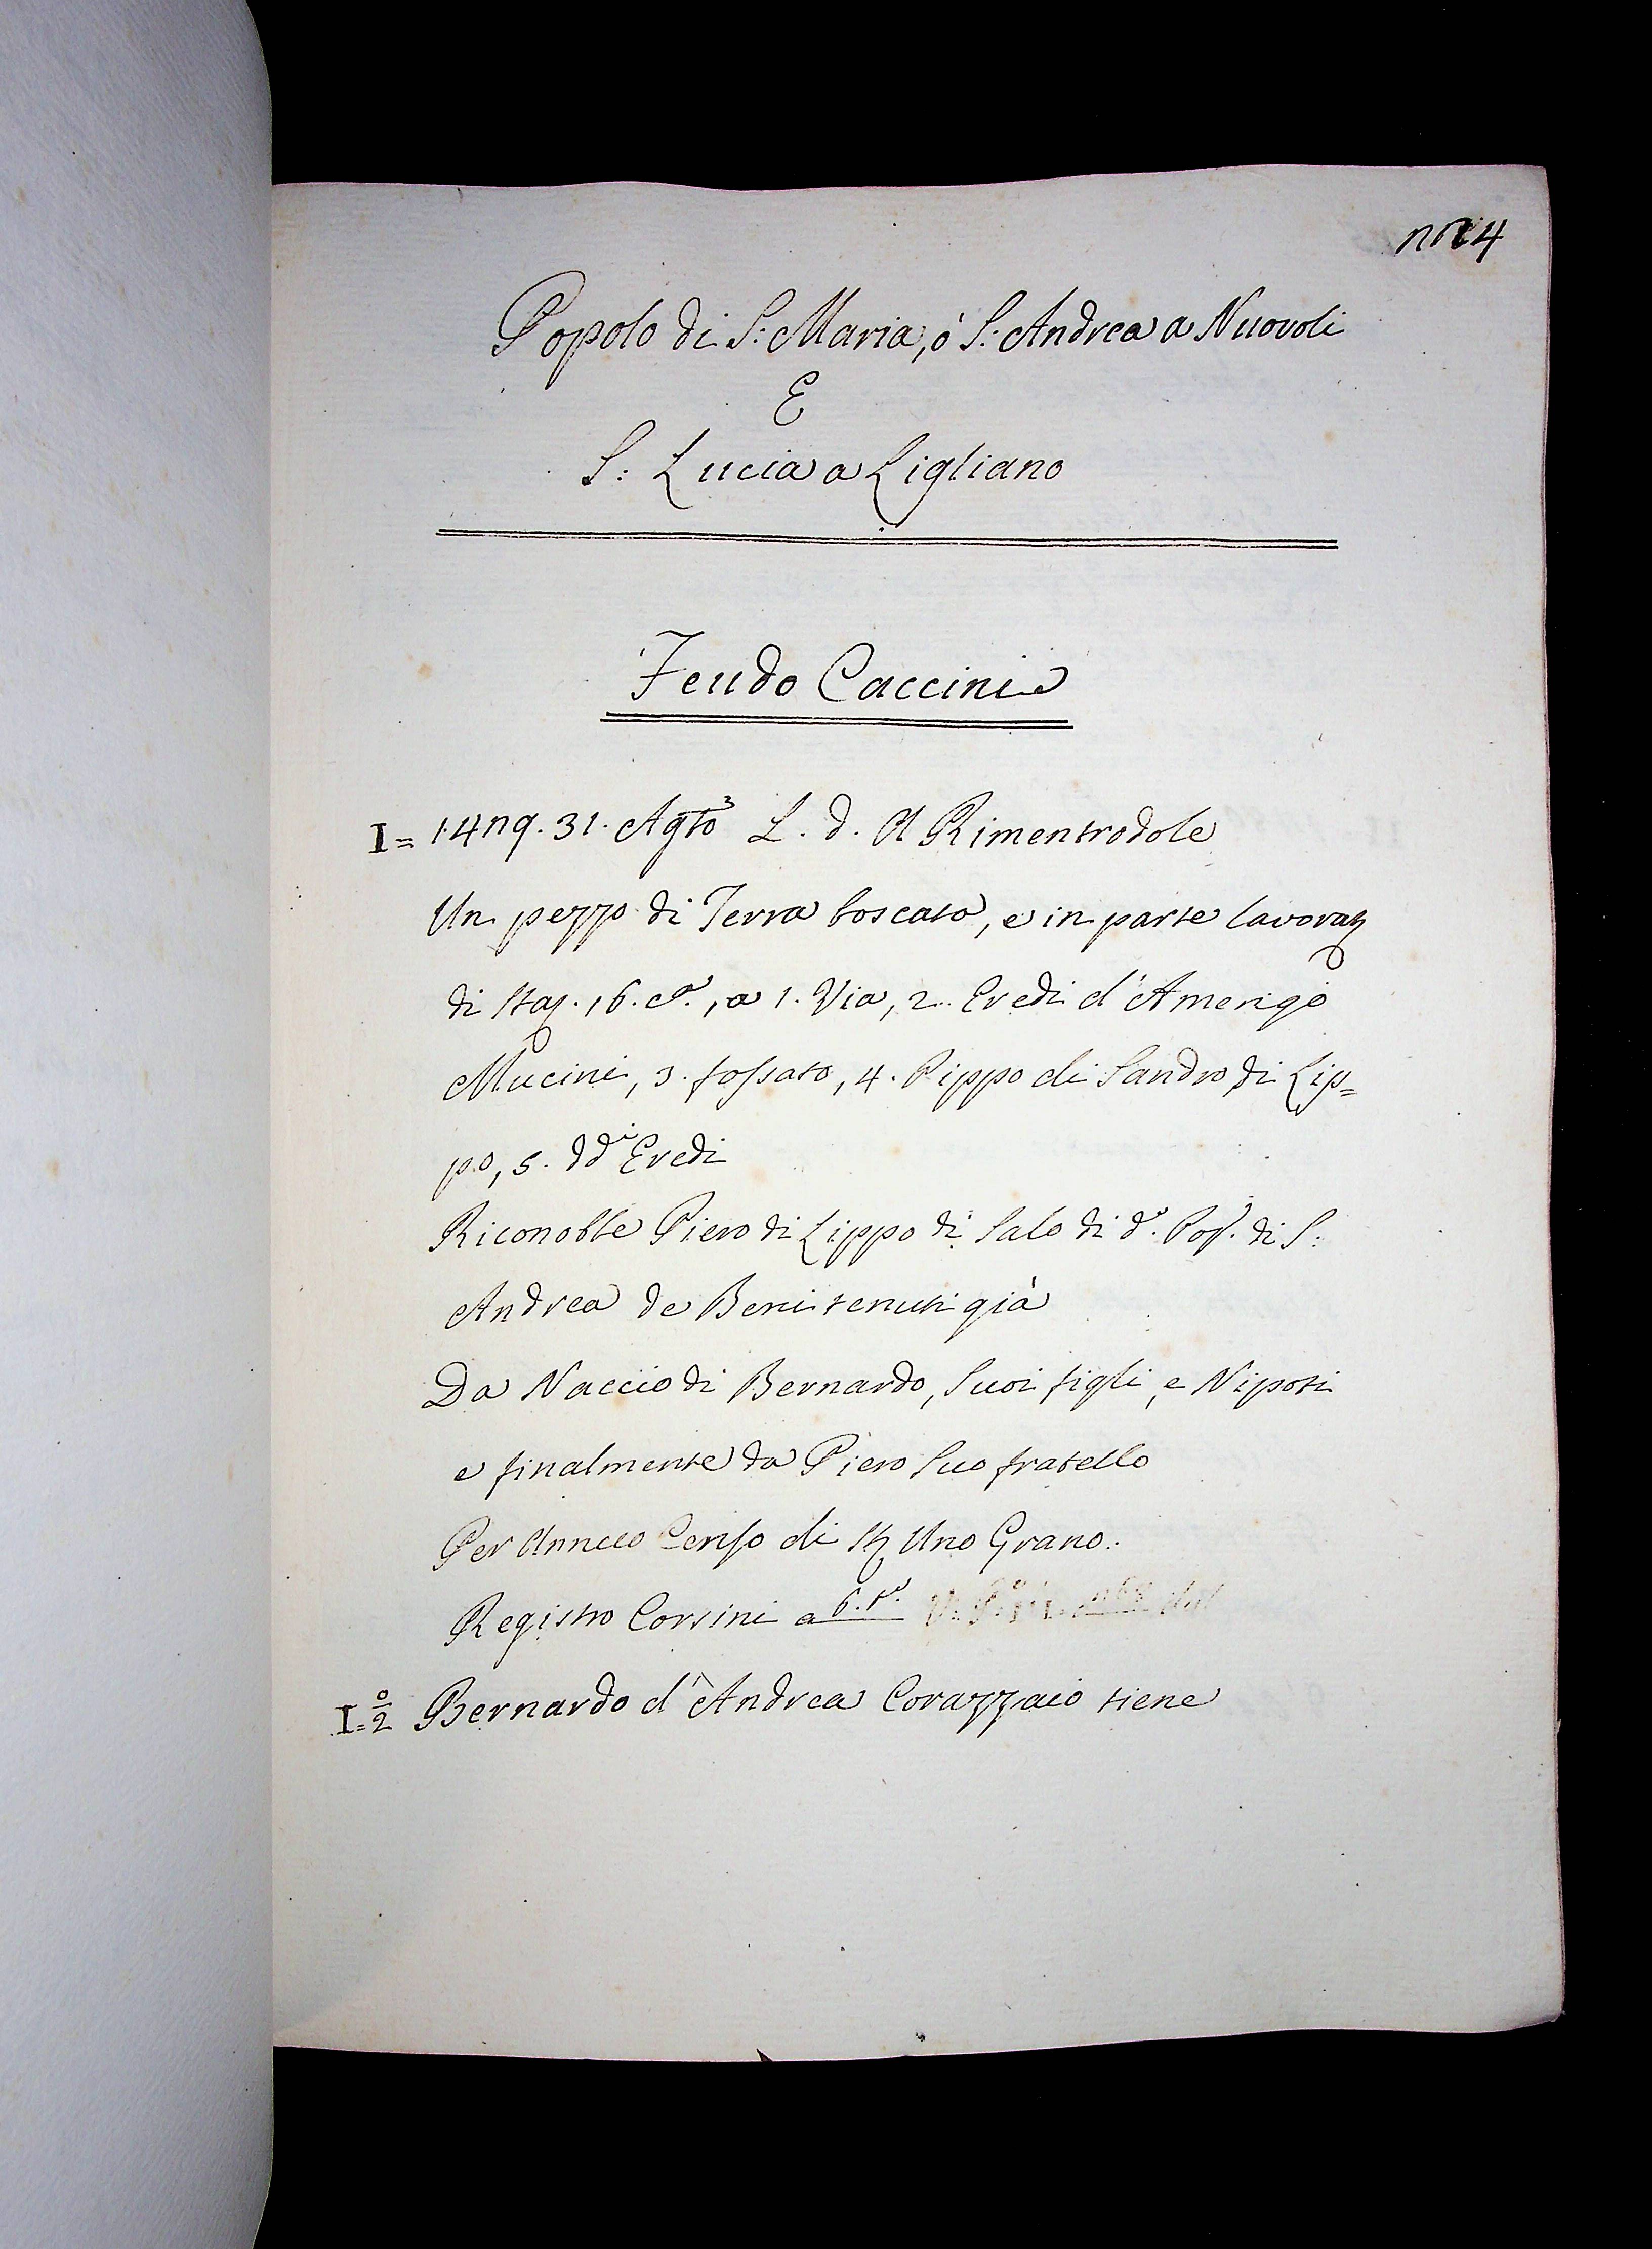 Popolo di S: Maria, ò S: Andrea a Nuovoli
E
S: Lucia a Ligliano
Feudo Caccini
I= 1479. 31. Agto L. d. A Rimentrodole
Un pezzo di Terra boscata, e in parte lavorat
di Sta. 16. co., a 1. Via, 2. Eredi d'Amerigo
Mucini, 3. fossato, 4. Pippo di Sandro di Lip=
po, 5. ddi Eredi
Riconobbe Piero di Lippo di Salo di do. Pop. di S:
Andrea de Beni tenuti già
Da Naccio di Bernardo, Suoi figli, e Nipoti
e finalmente da Piero Suo fratello
Per Annuo Censo di St Uno Grano.
Registro Corsini a 6. to.
I=2 Bernardo d'Andrea Corazzaio tiene